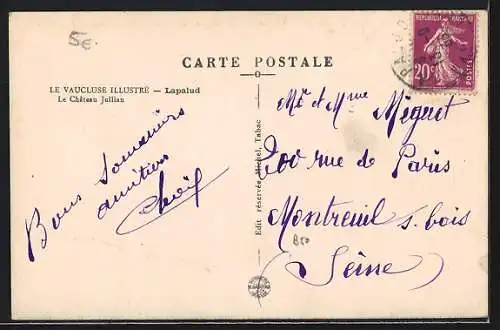 5€
CARTE POSTALE
REPUBLIQUE FRANÇAISE
20c
POSTES
LE VAUCLUSE ILLUSTRÉ — Lapalud
Le Château Jullian
Mr et Mme Méguet
200 rue de Paris
Montreuil s. bois
(Seine)
Bons Souvenirs
amitiés
Edit réservée Michel, Tabac